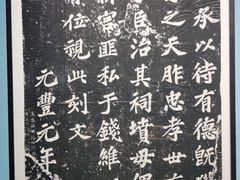 承以待有德既
之天胙忠孝世有
臣治其祠墳毋俾
新宮匪私于錢維
有位視此刻文
元豐元年